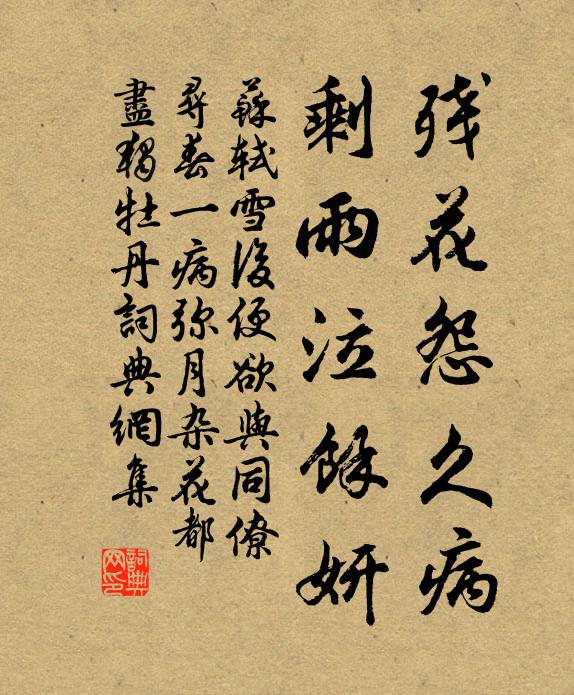 残花怨久病
剩雨泣餘妍
蘇軾雪後便欲與同僚
尋春一病弥月杂花都
盡獨牡丹詞典網集
詞典
网印